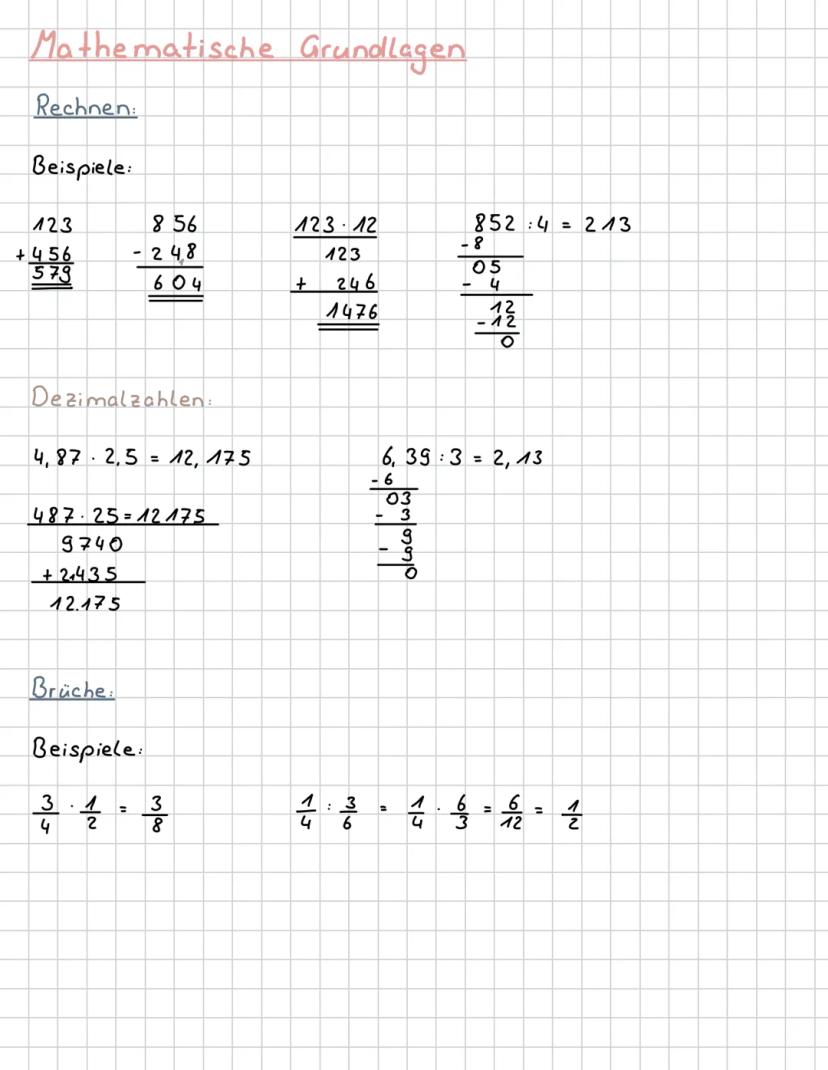 Mathematische Grundlagen
Rechnen:
Beispiele:
123 856 123 · 12 852 : 4 = 213
+ 456 - 248 123 - 8
579 604 + 246 05
1476 - 4
12
- 12
0
Dezimalzahlen:
4,87 · 2,5 = 12,175 6,39 : 3 = 2,13
- 6
487 · 25 = 12175 03
9740 - 3
+ 2435 9
12.175 - 9
0
Brüche:
Beispiele:
3/4 · 1/2 = 3/8 1/4 : 3/6 = 1/4 · 6/3 = 6/12 = 1/2